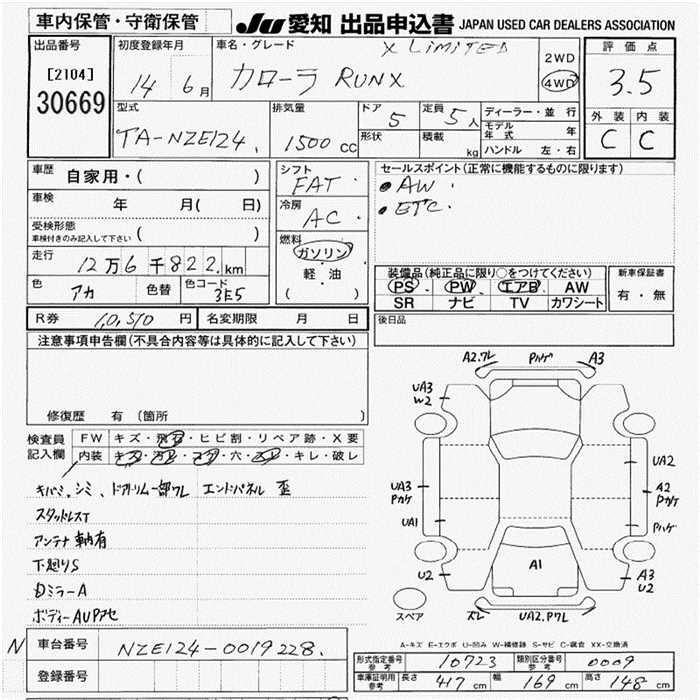 車内保管・守衛保管 JU 愛知 出品申込書 JAPAN USED CAR DEALERS ASSOCIATION
出品番号 [2104] 30669
初度登録年月 14 6月
車名・グレード X LIMITED
カローラ RUNX
2WD
4WD
評価点
3.5
外装 内装
C C
型式 TA-NZE124.
排気量 1500cc
ドア 5
形状
定員 5人
積載 kg
ディーラー・並行
モデル年式 年
ハンドル 左・右
車歴 自家用・( )
車検 年 月( 日)
受検形態
車検付きのみ記入して下さい ( )
走行 12万6千822.km
色 アカ 色替 色コード 3E5
シフト FAT
冷房 AC
燃料 ガソリン・
軽・油
( )
セールスポイント(正常に機能するものに限ります)
・AW・
・ETC・
装備品(純正品に限り○をつけてください)
PS PW エアB AW
SR ナビ TV カワシート
新車保証書
有・無
R券 10,510円 名変期限 月 日
後日品
注意事項申告欄(不具合内容等は具体的に記入して下さい)
修復歴 有 (箇所 )
検査員記入欄
FW キズ・飛石・ヒビ割・リペア跡・X要
内装 キズ・汚レ・コゲ・穴・スレ・キレ・破レ
キバミ、シミ、ドアトリム一部ワレ エンドパネル 歪
スタッドレスT
アンテナ 軸有
下廻りS
Dミラー A
ボディー AUPアセ
A2.ワレ Pハゲ A3
UA3
W2
UA3
Pカケ
UA1
U2
UA2
A2
Pカケ
Pハゲ
A3
U2
A1
スペア
ズレ UA2.Pワレ
A-キズ E-エクボ U-凹み W-補修跡 S-サビ C-腐食 XX-交換済
N 車台番号 NZE124-0019228.
登録番号
形式指定番号 参考 10723 類別区分番号 参考 0009
車庫証明用 参考 長さ 417cm 幅 169cm 高さ 148cm